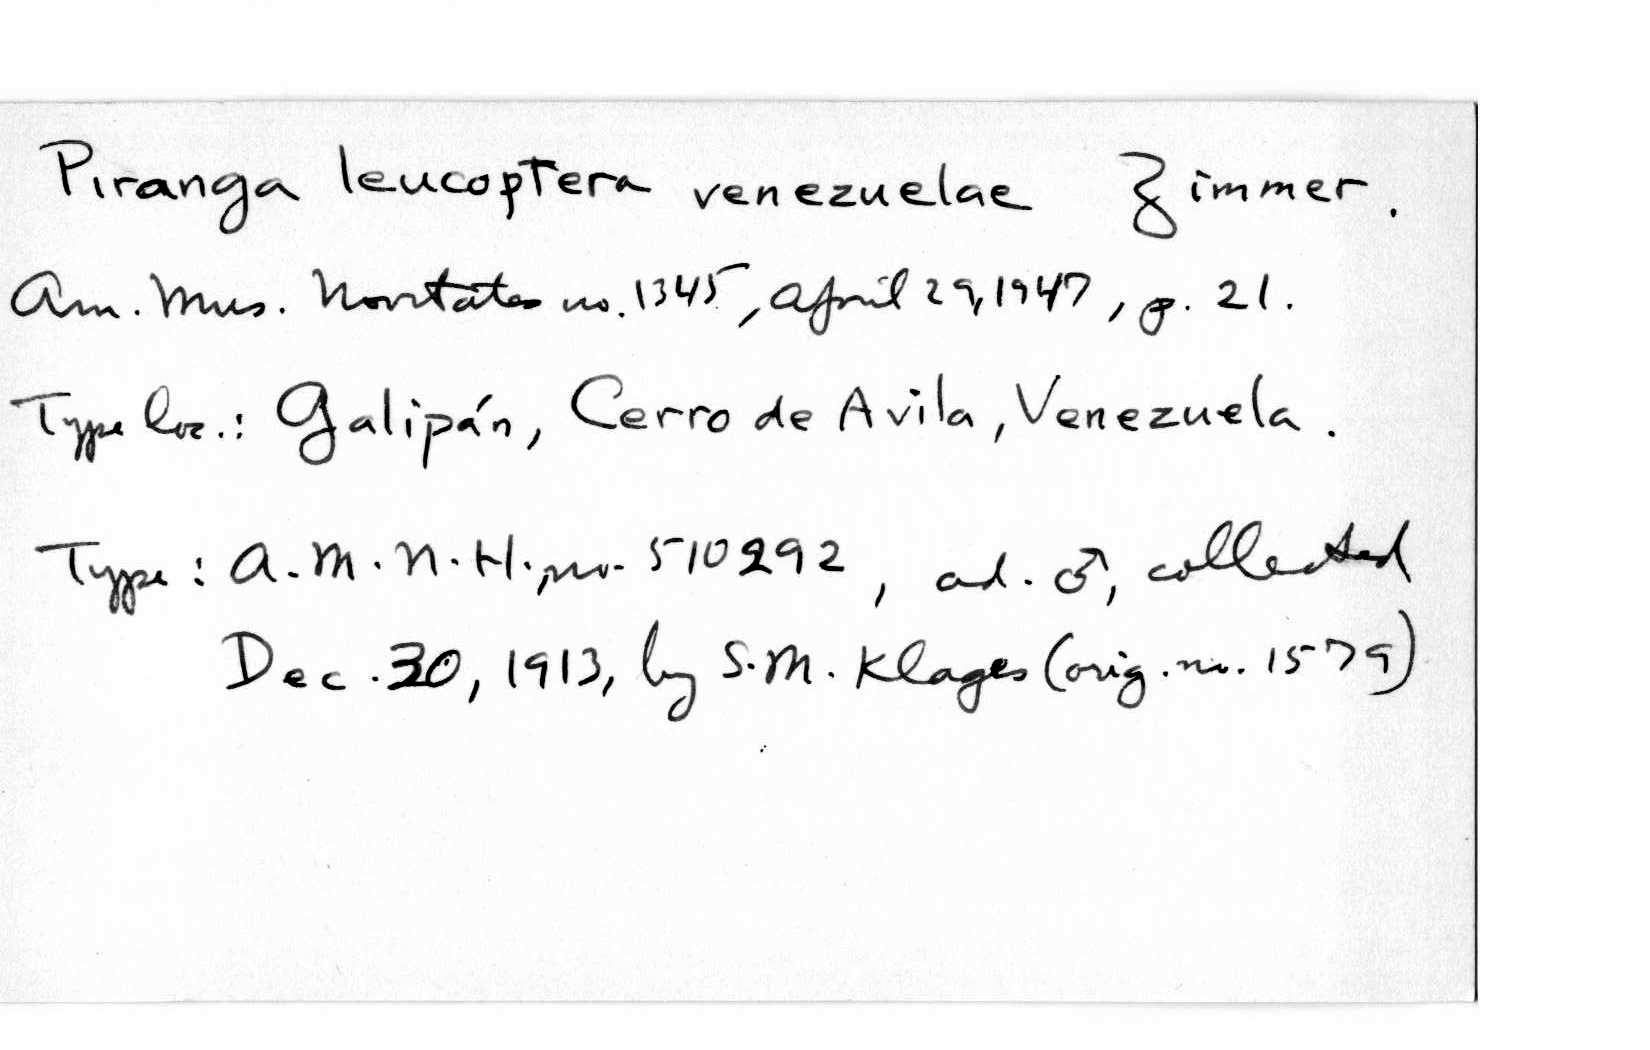 Piranga leucoptera venezuelae Zimmer.
Am. Mus. Novitates no. 1345, April 29, 1947, p. 21.
Type loc.: Galipán, Cerro de Avila, Venezuela.
Type: A.M.N.H. no. 510292, ad. ♂, collected
Dec. 30, 1913, by S.M. Klages (orig. no. 1579)